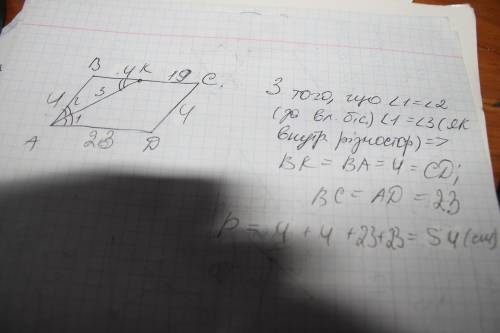 B 4 K 19 C.
4 2 3 4
1
A 23 D
З того, що ∠1=∠2
(за вл. біс) ∠1=∠3 (як
внутр різностор) =>
BK = BA = 4 = CD;
BC = AD = 23
P = 4 + 4 + 23+23 = 54 (см)